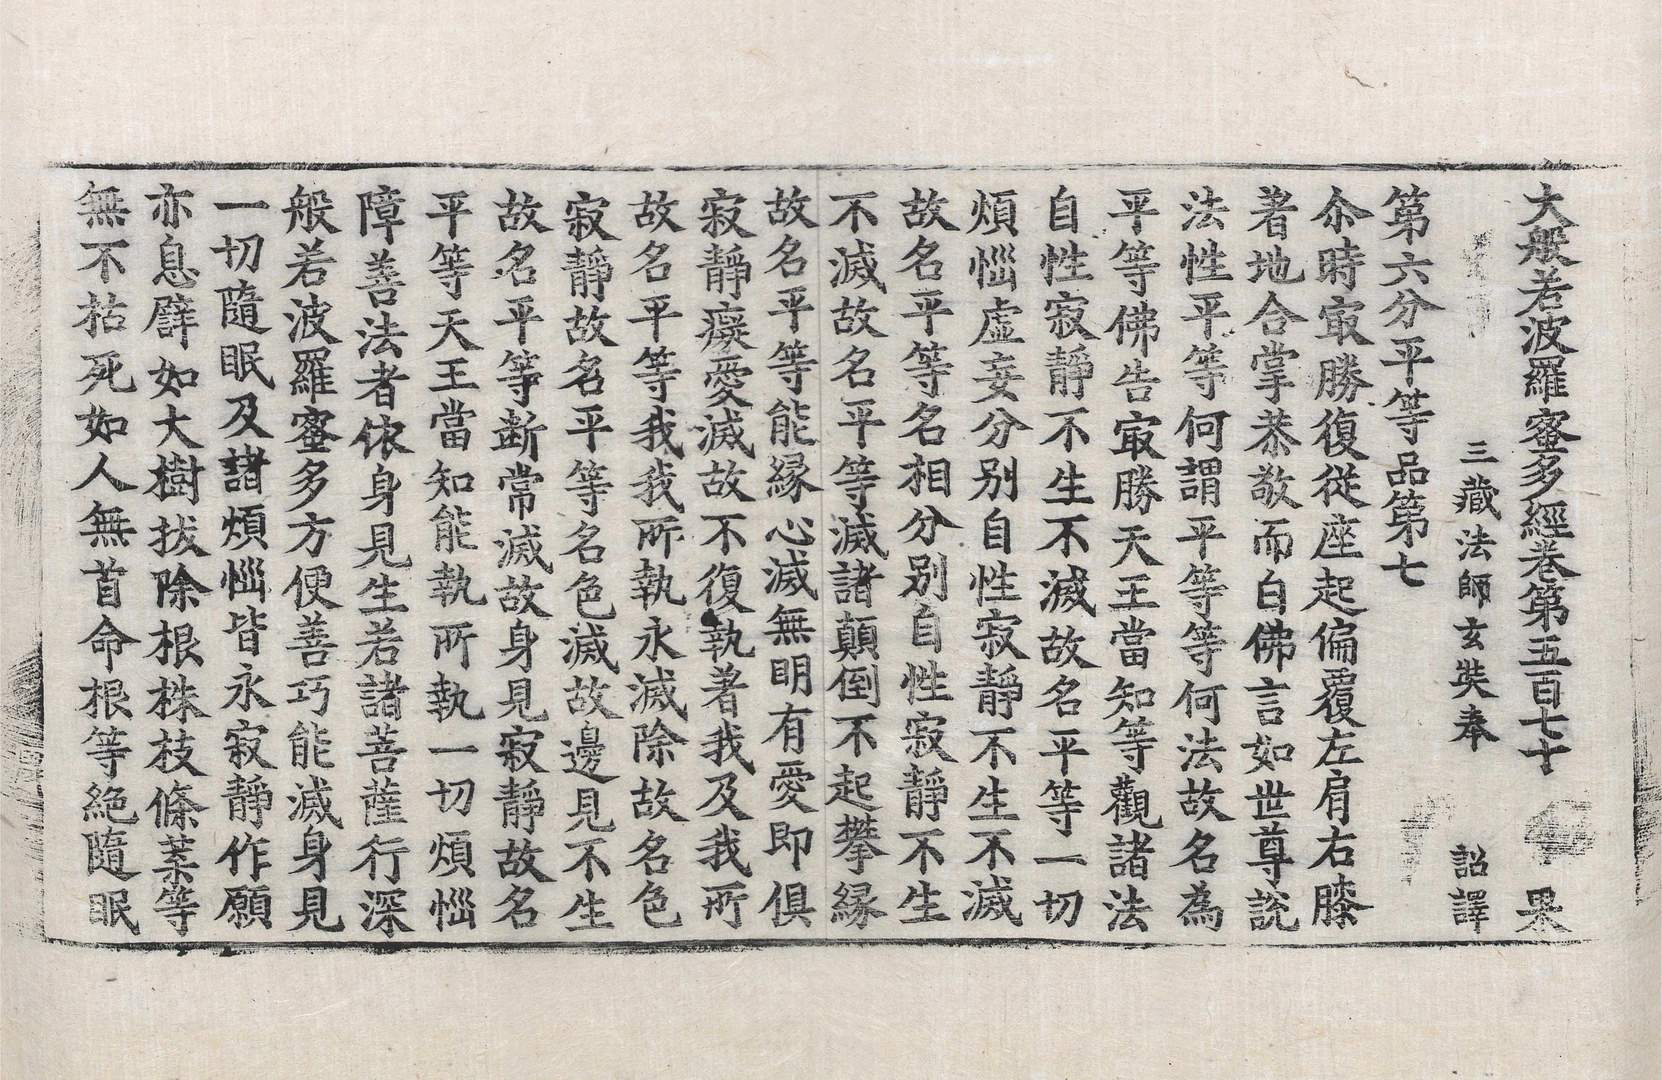 大般若波羅蜜多經卷第五百七十　果
三藏法師玄奘奉　詔譯
第六分平等品第七
尒時㝡勝復從座起偏覆左肩右膝
著地合掌恭敬而白佛言如世尊說
法性平等何謂平等等何法故名為
平等佛告㝡勝天王當知等觀諸法
自性寂靜不生不滅故名平等一切
煩惱虛妄分別自性寂靜不生不滅
故名平等名相分別自性寂靜不生
不滅故名平等滅諸顛倒不起攀緣
故名平等能緣心滅無明有愛即俱
寂靜癡愛滅故不復執著我及我所
故名平等我我所執永滅除故名色
寂靜故名平等名色滅故邊見不生
故名平等斷常滅故身見寂靜故名
平等天王當知能執所執一切煩惱
障善法者依身見生若諸菩薩行深
般若波羅蜜多方便善巧能滅身見
一切隨眠及諸煩惱皆永寂靜作願
亦息譬如大樹拔除根株枝條葉等
無不枯死如人無首命根等絕隨眠